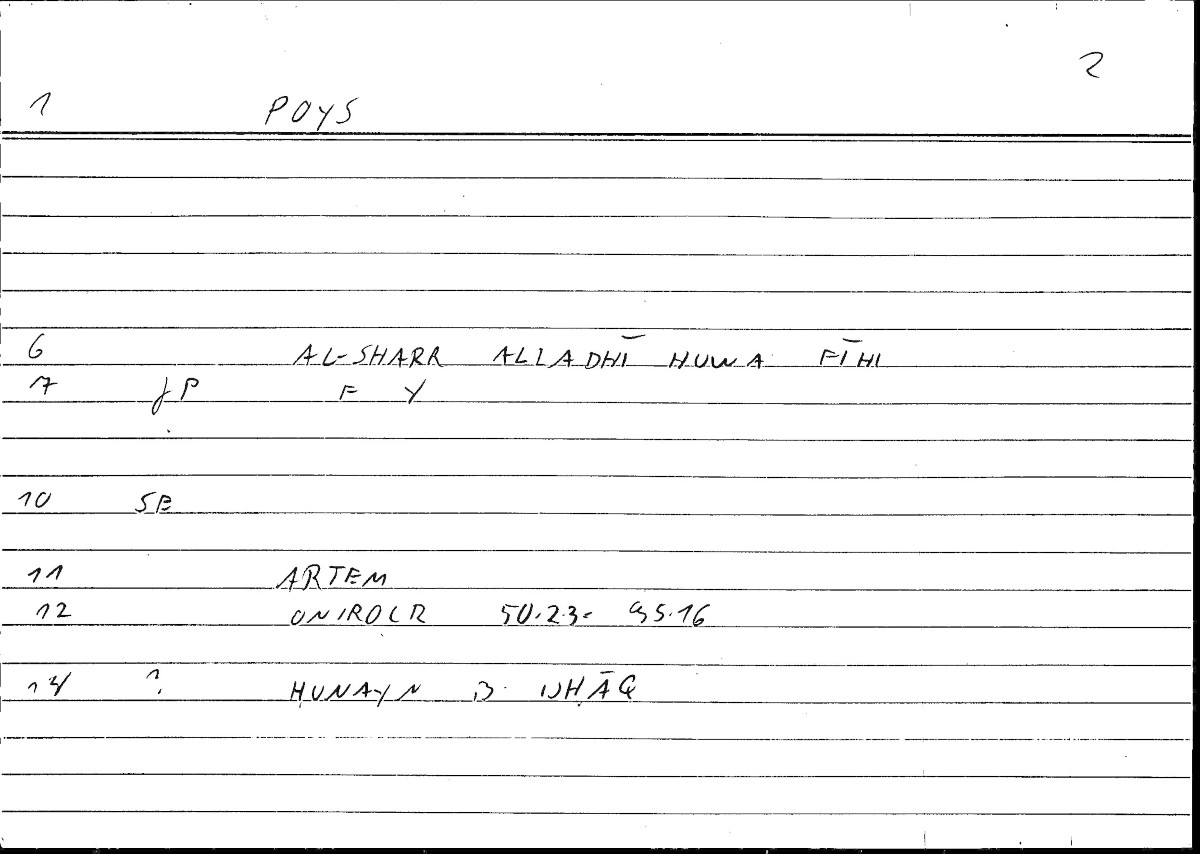 2
1 POYS
6 AL-SHARR ALLADHĪ HUWA FĪHI
7 JP F Y
10 SB
11 ARTEM
12 ONIROCR 50.23- 95.16
14 ? ḤUNAYN B. ISḤĀQ